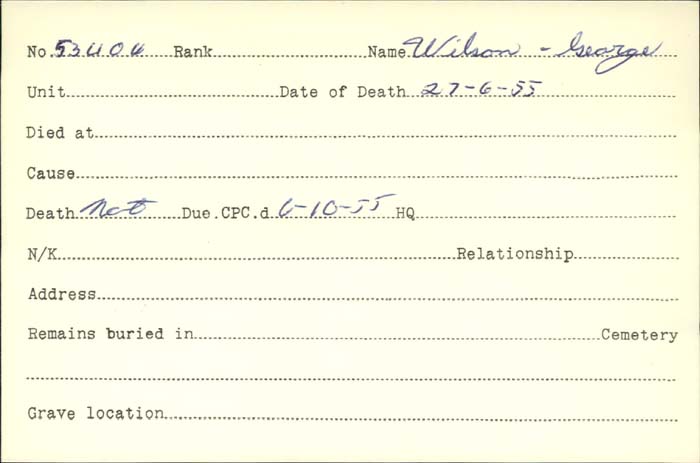 No. 53404 Rank Name Wilson - George
Unit Date of Death 27-6-55
Died at
Cause
Death Not Due.CPC.d 6-10-55 HQ
N/K Relationship
Address
Remains buried in Cemetery
Grave location